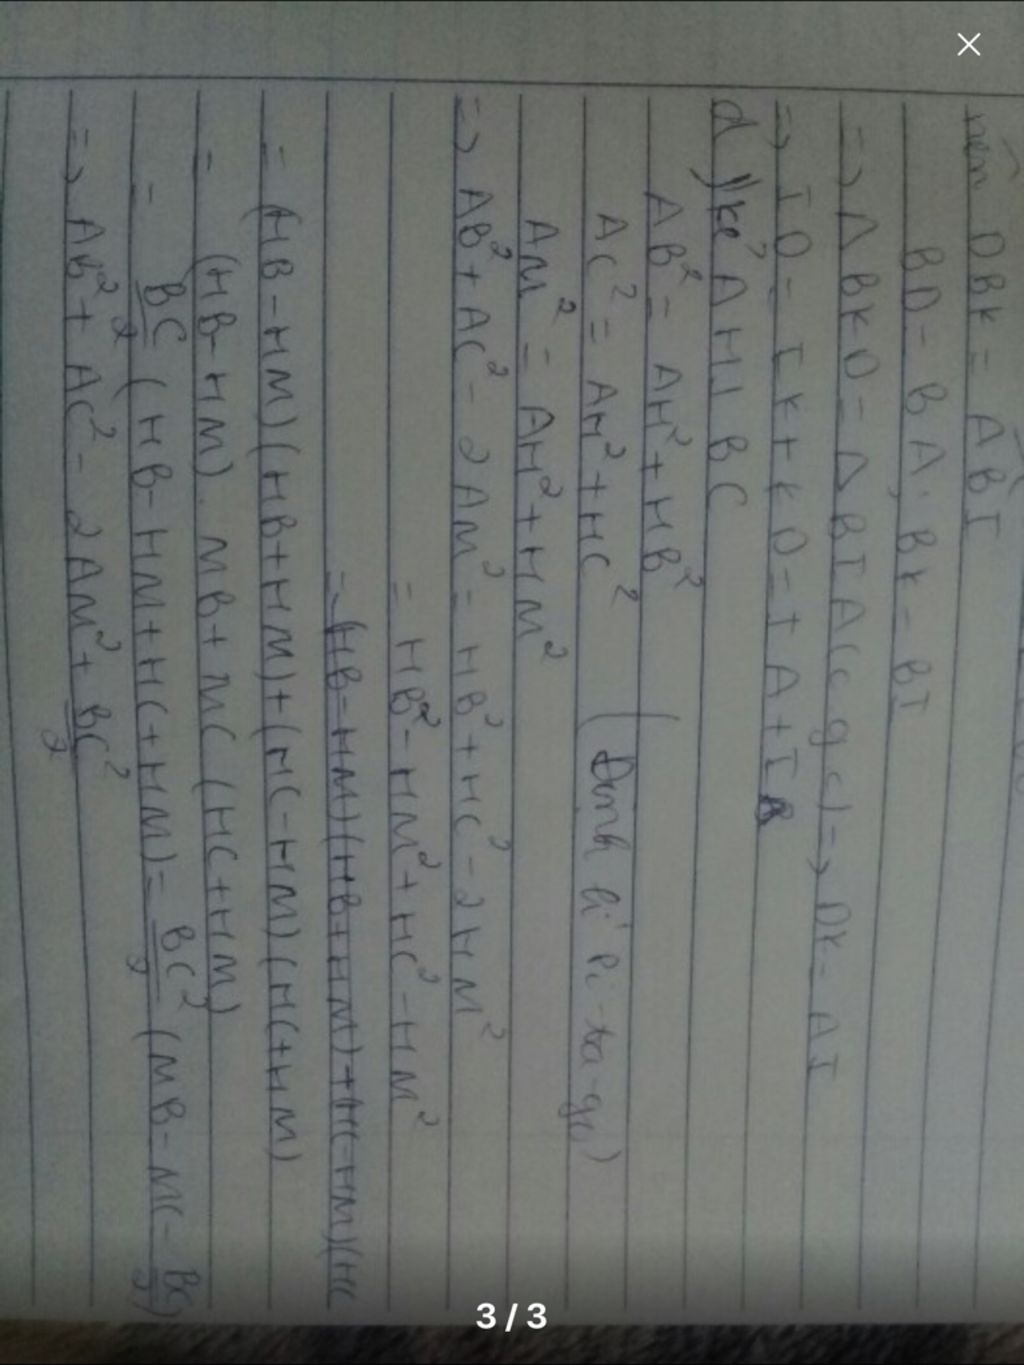 nên DBK = ABI
BD = BA, BK = BI
=> Δ BKD = Δ BIA (c g c) => DK = AI
=> ID = IK + KD = IA + IB
d) kẻ AH ⊥ BC
AB² = AH² + HB²
AC² = AH² + HC² (Định lí Pi-ta-go)
AM² = AH² + HM²
=> AB² + AC² - 2AM² = HB² + HC² - 2HM²
= HB² - HM² + HC² - HM²
= (HB - HM)(HB + HM) + (HC - HM)(HC
= (HB - HM)(HB + HM) + (HC - HM)(HC + HM)
= (HB - HM). MB + MC (HC + HM)
= BC/2 (HB - HM + HC + HM) = BC²/2 (MB = MC = BC/2)
=> AB² + AC² = 2AM² + BC²/2
3/3